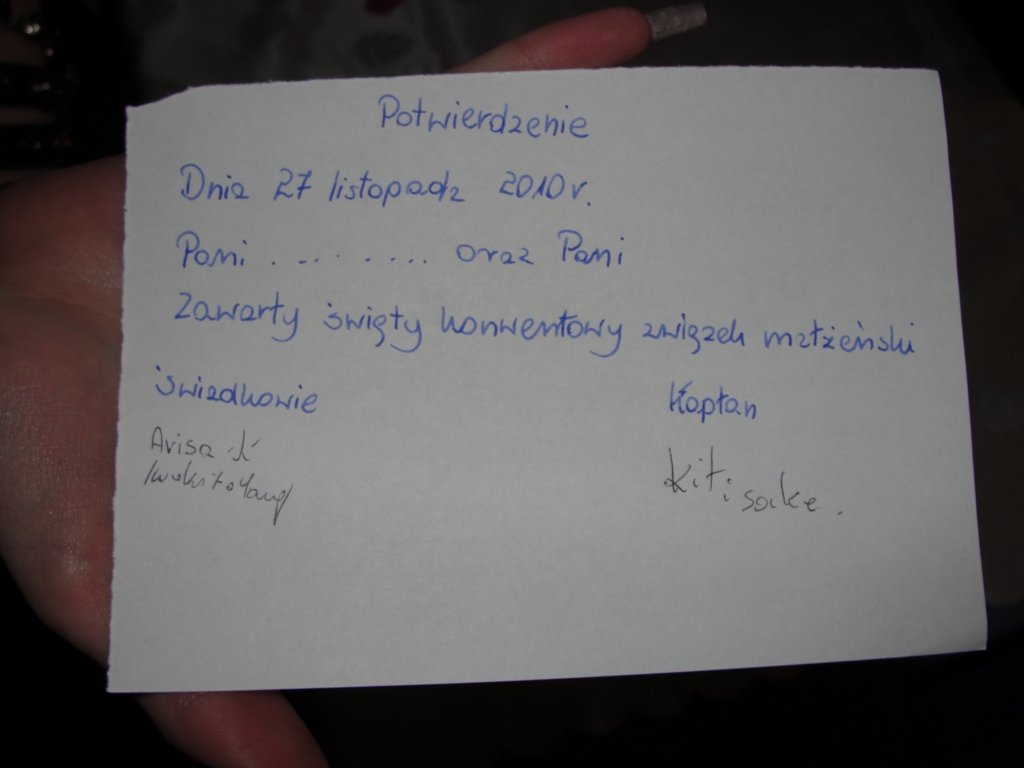 Potwierdzenie
Dnia 27 listopada 2010 r.
Pani . ... . .... oraz Pani
Zawarty święty konwentowy związek małżeński
świadkowie
Kapłan
Arisa
Kiti sake .